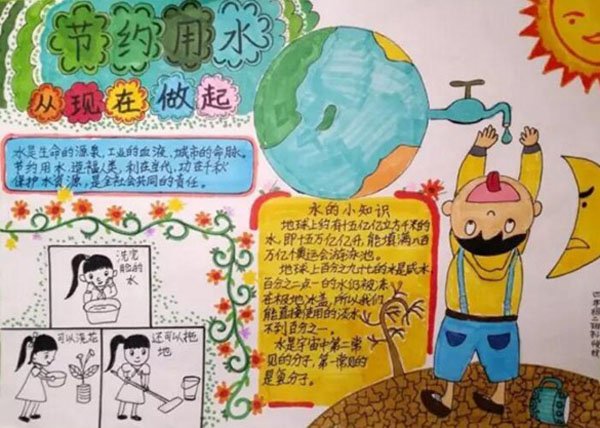 节约用水
从现在做起
水是生命的源泉,工业的血液,城市的命脉。
节约用水,造福人类,利在当代,功在千秋
保护水资源,是全社会共同的责任。
水的小知识
地球上约有十五亿亿立方千米的
水,即十五万亿亿升,能填满八百
万亿个奥运会游泳池。
地球上百分之九十七的水是咸水,
百分之二点一的水仍被冻
在极地冰盖,所以我们
能直接使用的淡水
不到百分之一。
水是宇宙中第二常
见的分子,第一常见的
是氢分子。
洗完
脸的
水
可以浇花
还可以拖
地
四年级二班